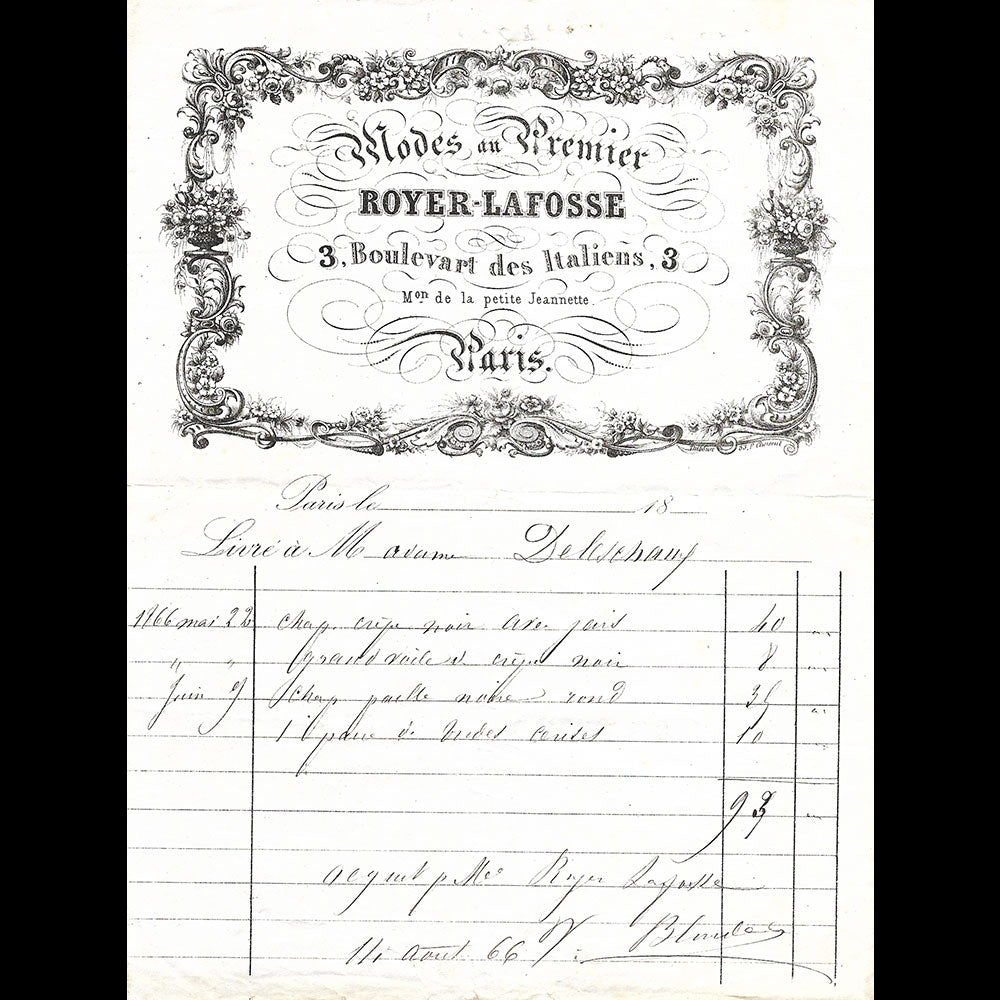 Modes au Premier
ROYER-LAFOSSE
3, Boulevart des Italiens, 3
Mon de la petite Jeannette.
Paris.
Paris le 18
Livré à Madame Deleschaux
1866 mai 22 chap. crêpe noir avec jais 40 "
" " grand voile de crêpe noir 8 "
Juin 9 chap paille noire rond 35 "
1 de brides 10 "
93 "
acquit p Mme Royer Lafosse
août 66